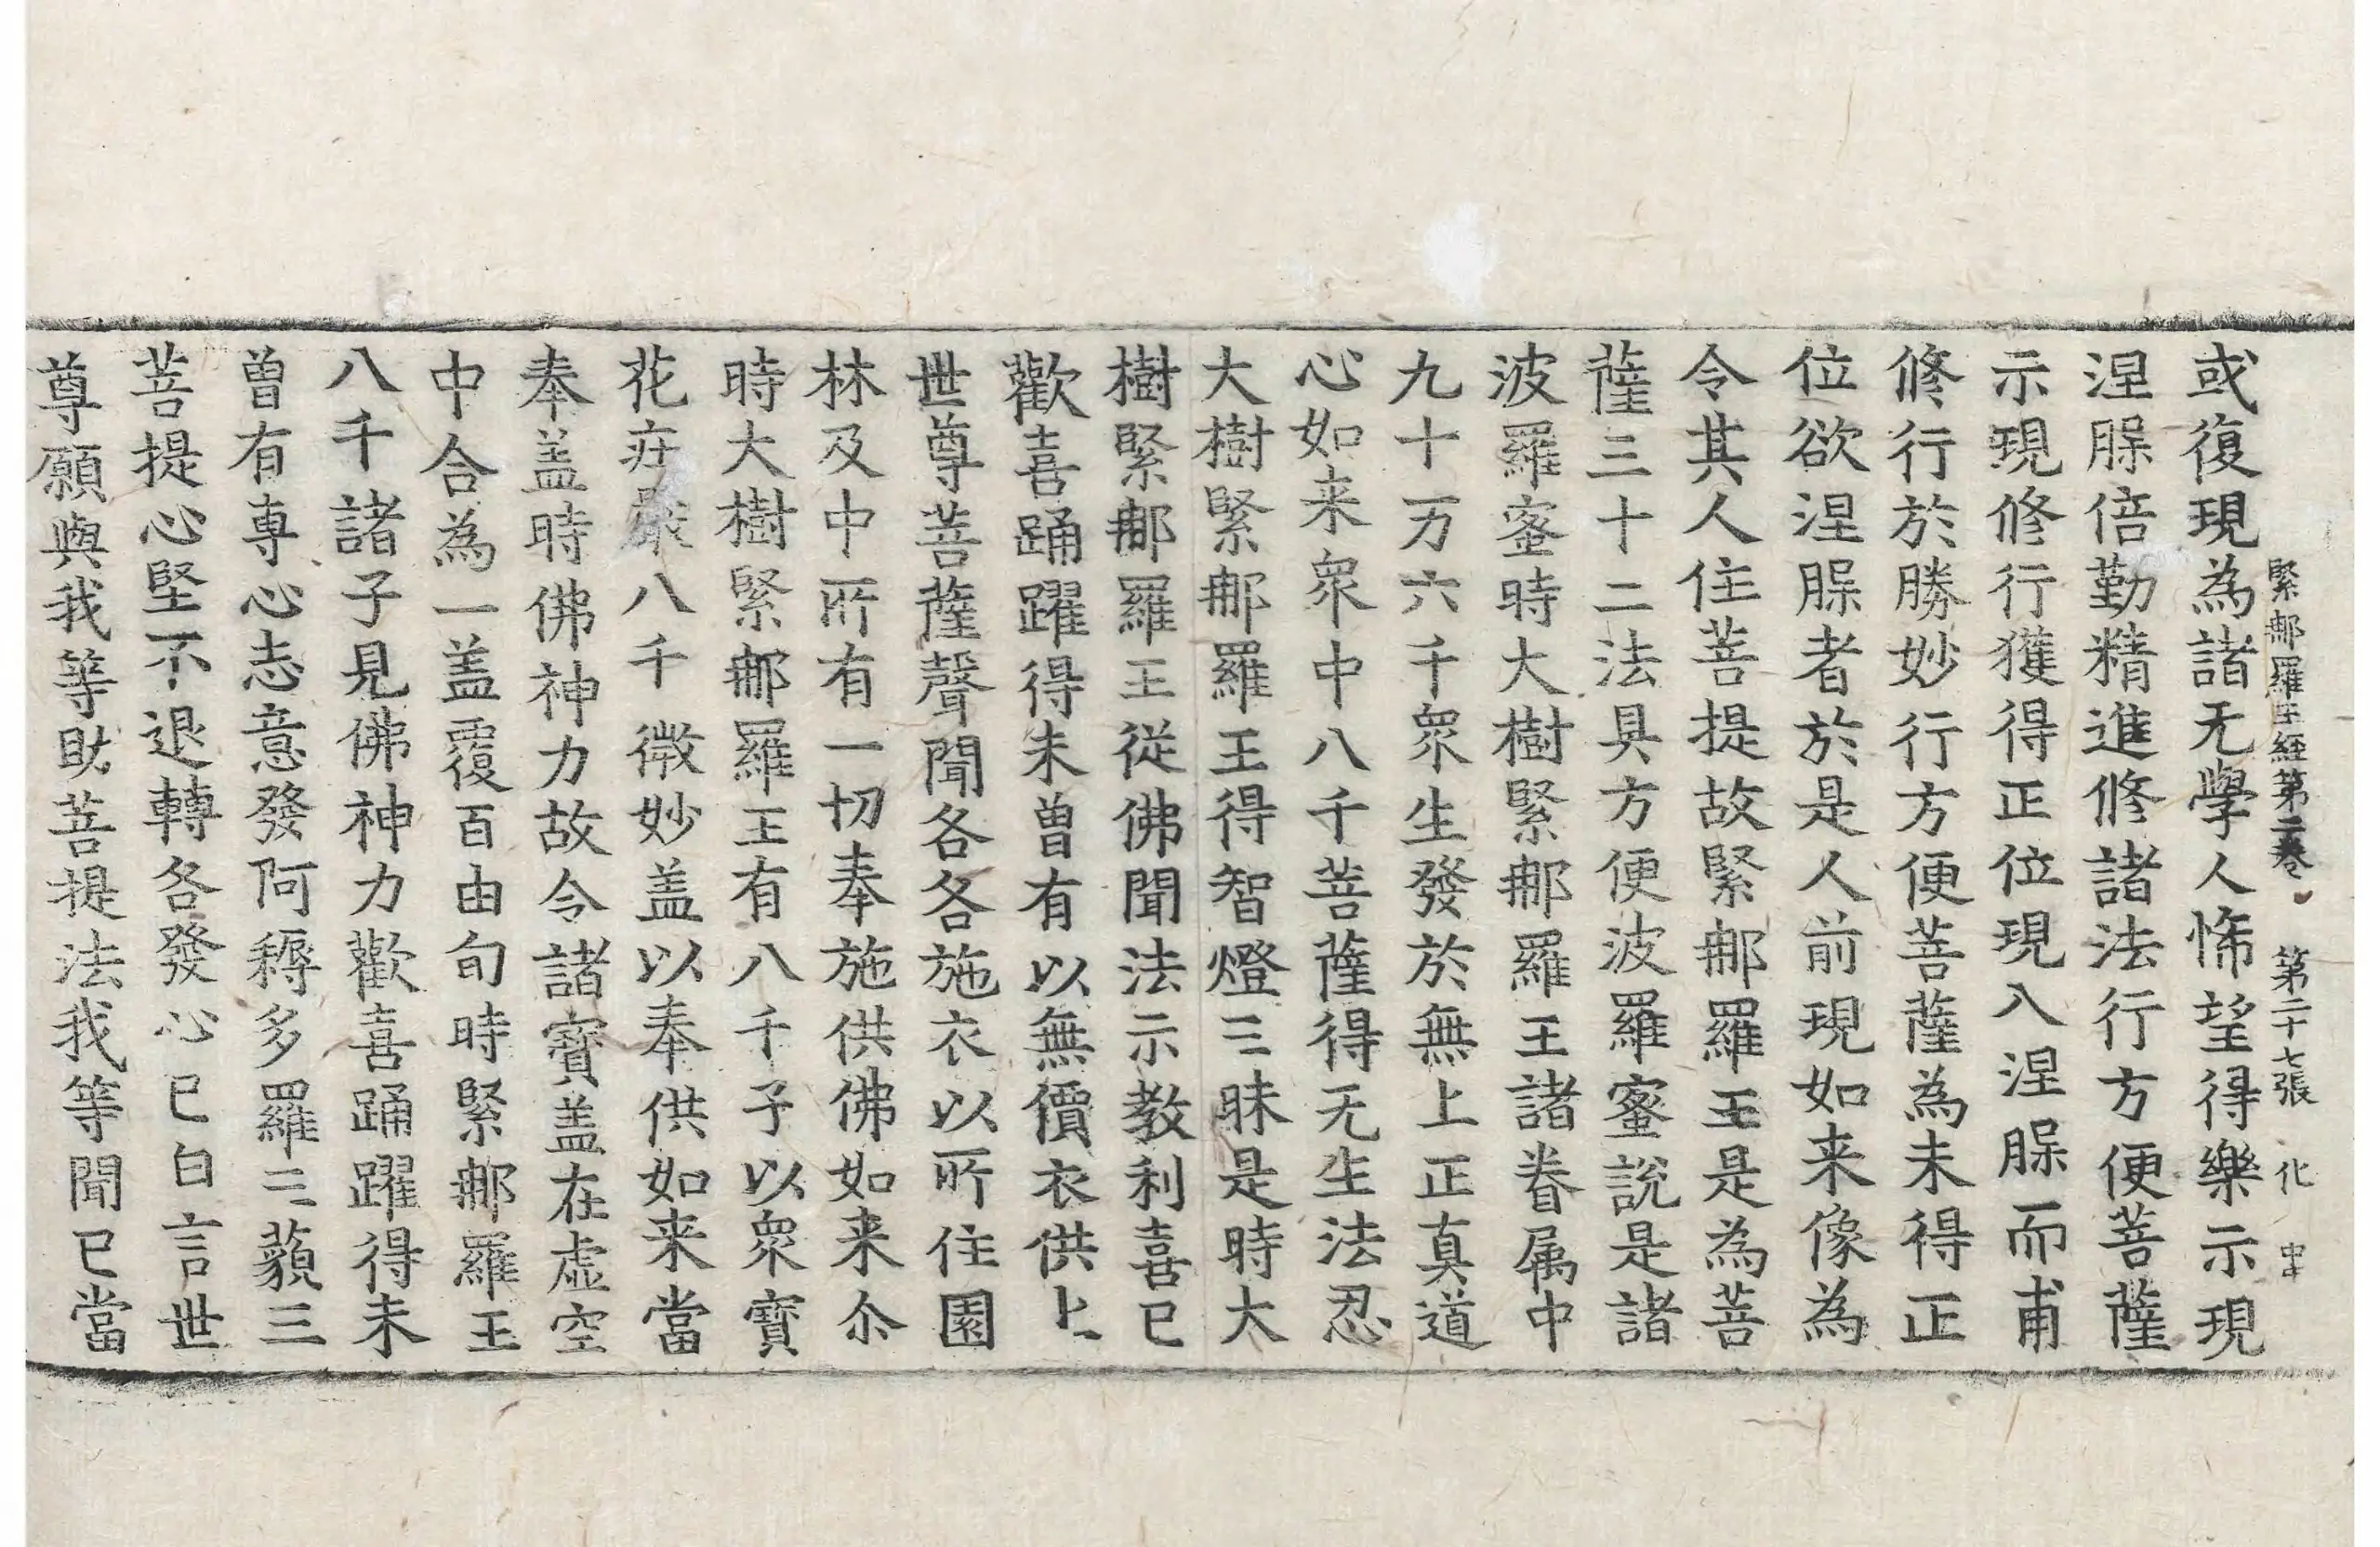 緊那羅王經第二卷 第二十七張 化 中
或復現為諸无學人悕望得樂示現
涅槃倍勤精進修諸法行方便菩薩
示現修行獲得正位現入涅槃而甫
修行於勝妙行方便菩薩為未得正
位欲涅槃者於是人前現如来像為
令其人住菩提故緊那羅王是為菩
薩三十二法具方便波羅蜜說是諸
波羅蜜時大樹緊那羅王諸眷属中
九十万六千眾生發於無上正真道
心如来眾中八千菩薩得无生法忍
大樹緊那羅王得智燈三昧是時大
樹緊那羅王從佛聞法示教利喜已
歡喜踊躍得未曾有以無價衣供上
世尊菩薩聲聞各各施衣以所住園
林及中所有一切奉施供佛如来尒
時大樹緊那羅王有八千子以眾寶
花疘嚴八千微妙盖以奉供如来當
奉盖時佛神力故令諸寶盖在虛空
中合為一盖覆百由旬時緊那羅王
八千諸子見佛神力歡喜踊躍得未
曾有專心志意發阿耨多羅三藐三
菩提心堅不退轉各發心已白言世
尊願與我等助菩提法我等聞已當